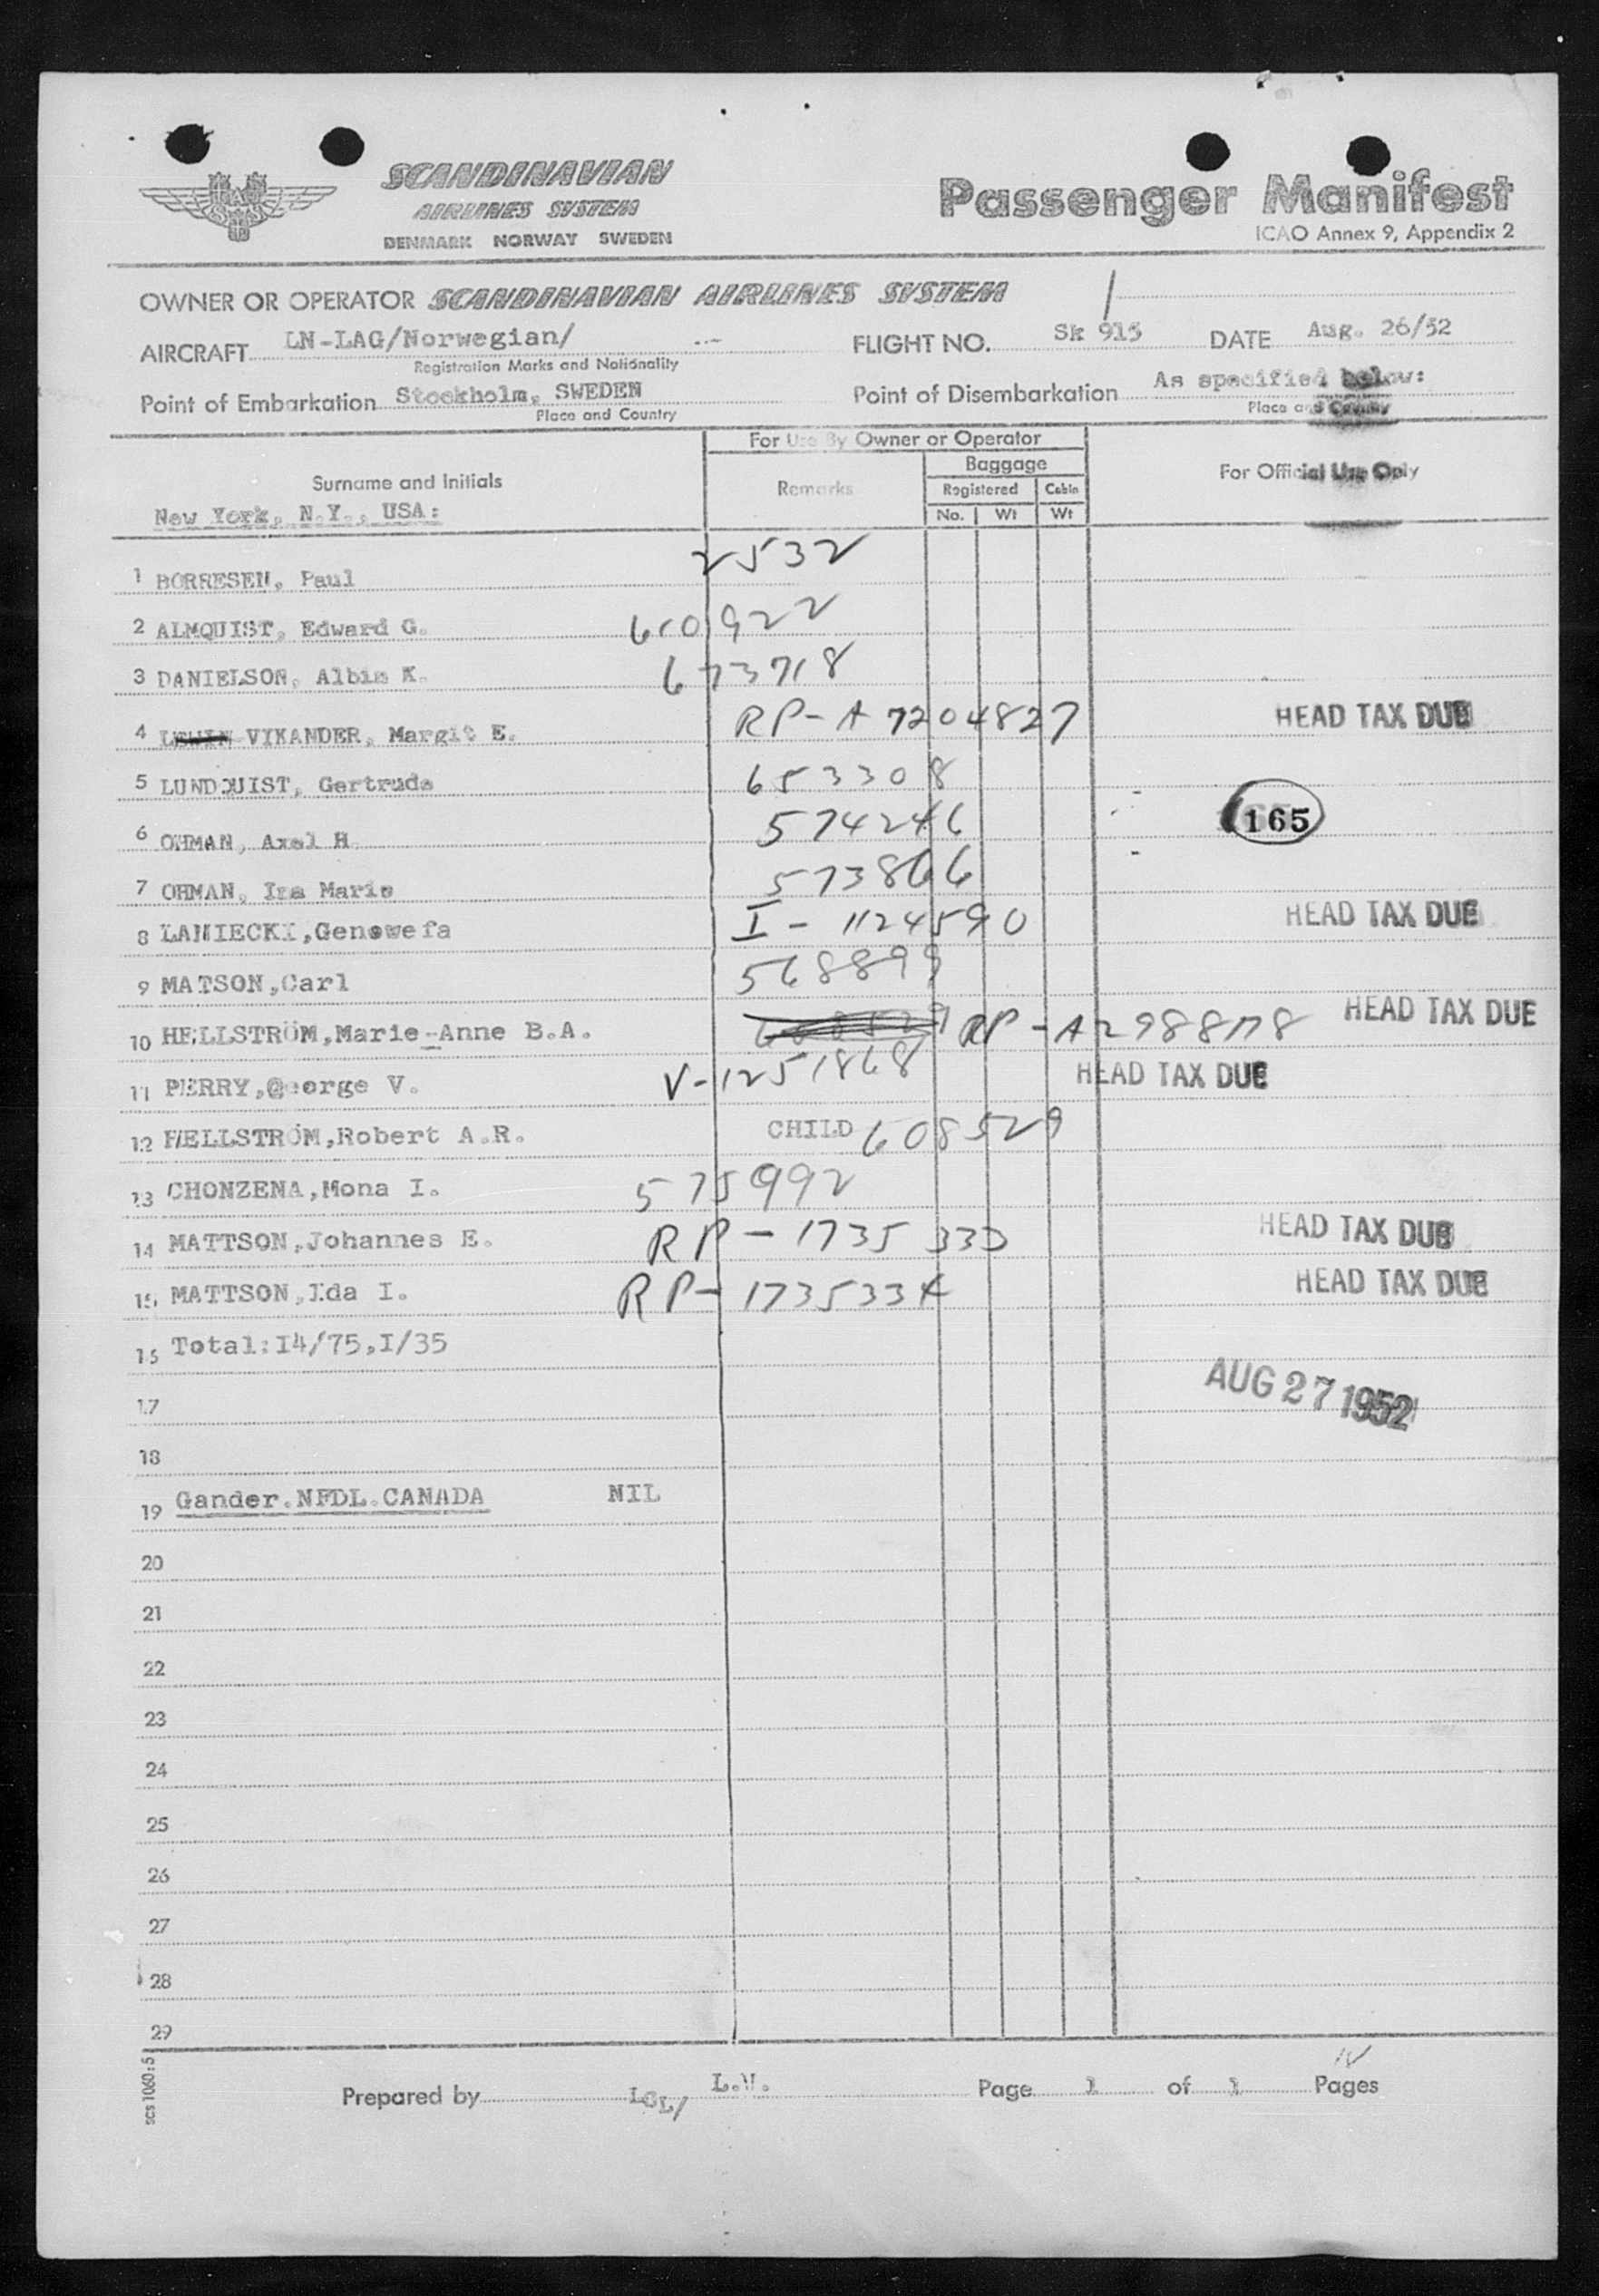 SAS
SCANDINAVIAN
AIRLINES SYSTEM
DENMARK NORWAY SWEDEN
Passenger Manifest
ICAO Annex 9, Appendix 2
OWNER OR OPERATOR SCANDINAVIAN AIRLINES SYSTEM
AIRCRAFT LN-LAG/Norwegian/ FLIGHT NO. SK 915 DATE Aug. 26/52
Registration Marks and Nationality
Point of Embarkation Stockholm, SWEDEN Point of Disembarkation As specified below:
Place and Country Place and Country
For Use By Owner or Operator
Surname and Initials Remarks Baggage For Official Use Only
Registered Cabin
No. Wt Wt
New York, N.Y., USA:
1 BORRESEN, Paul 2532
2 ALMQUIST, Edward G. 610922
3 DANIELSON, Albin K. 673718
4 VIKANDER, Margit E. RP-A 7204827 HEAD TAX DUE
5 LUNDQUIST, Gertrude 653308
165
6 OHMAN, Axel H. 574246
7 OHMAN, Ina Marie 573866
8 LANIECKI,Genowefa I-1124590 HEAD TAX DUE
9 MATSON,Carl 568899
10 HELLSTRÖM,Marie-Anne B.A. RP-A2988178 HEAD TAX DUE
11 PERRY,George V. V-1251868 HEAD TAX DUE
12 HELLSTRÖM,Robert A.R. CHILD 608529
13 CHONZENA,Mona I. 575992
14 MATTSON,Johannes E. RP-1735333 HEAD TAX DUE
15 MATTSON,Ida I. RP-1735334 HEAD TAX DUE
16 Total:I4/75,I/35
AUG 27 1952
17
18
19 Gander.NFDL.CANADA NIL
20
21
22
23
24
25
26
27
28
29
scs 1060:5
Prepared by LGL/ L.W. Page 1 of 1 Pages